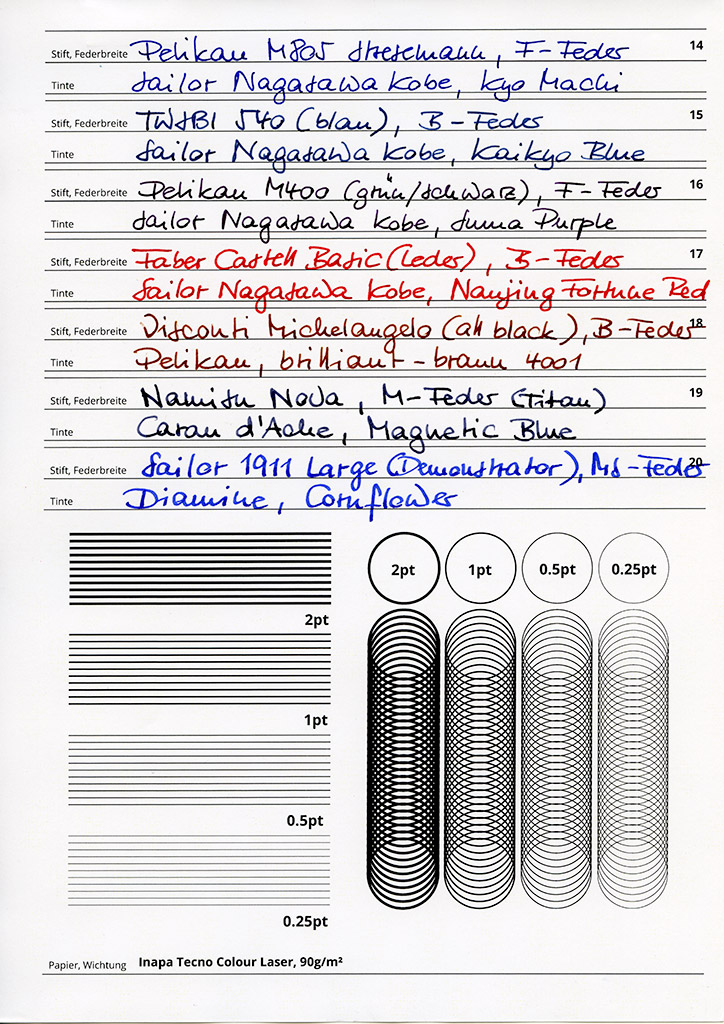 Stift, Federbreite Pelikan M805 Stresemann, F-Feder 14
Tinte Sailor Nagasawa Kobe, Kyo Machi
Stift, Federbreite TWSBI 540 (blau), B-Feder 15
Tinte Sailor Nagasawa Kobe, Kaikyo Blue
Stift, Federbreite Pelikan M400 (grün/schwarz), F-Feder 16
Tinte Sailor Nagasawa Kobe, Suma Purple
Stift, Federbreite Faber Castell Basic (Leder), B-Feder 17
Tinte Sailor Nagasawa Kobe, Nanjing Fortune Red
Stift, Federbreite Visconti Michelangelo (all black), B-Feder 18
Tinte Pelikan, brilliant-braun 4001
Stift, Federbreite Namisu Nova, M-Feder (Titan) 19
Tinte Caran d'Ache, Magnetic Blue
Stift, Federbreite Sailor 1911 Large (Demonstrator), MS-Feder 20
Tinte Diamine, Cornflower
2pt 1pt 0.5pt 0.25pt
2pt
1pt
0.5pt
0.25pt
Papier, Wichtung Inapa Tecno Colour Laser, 90g/m²